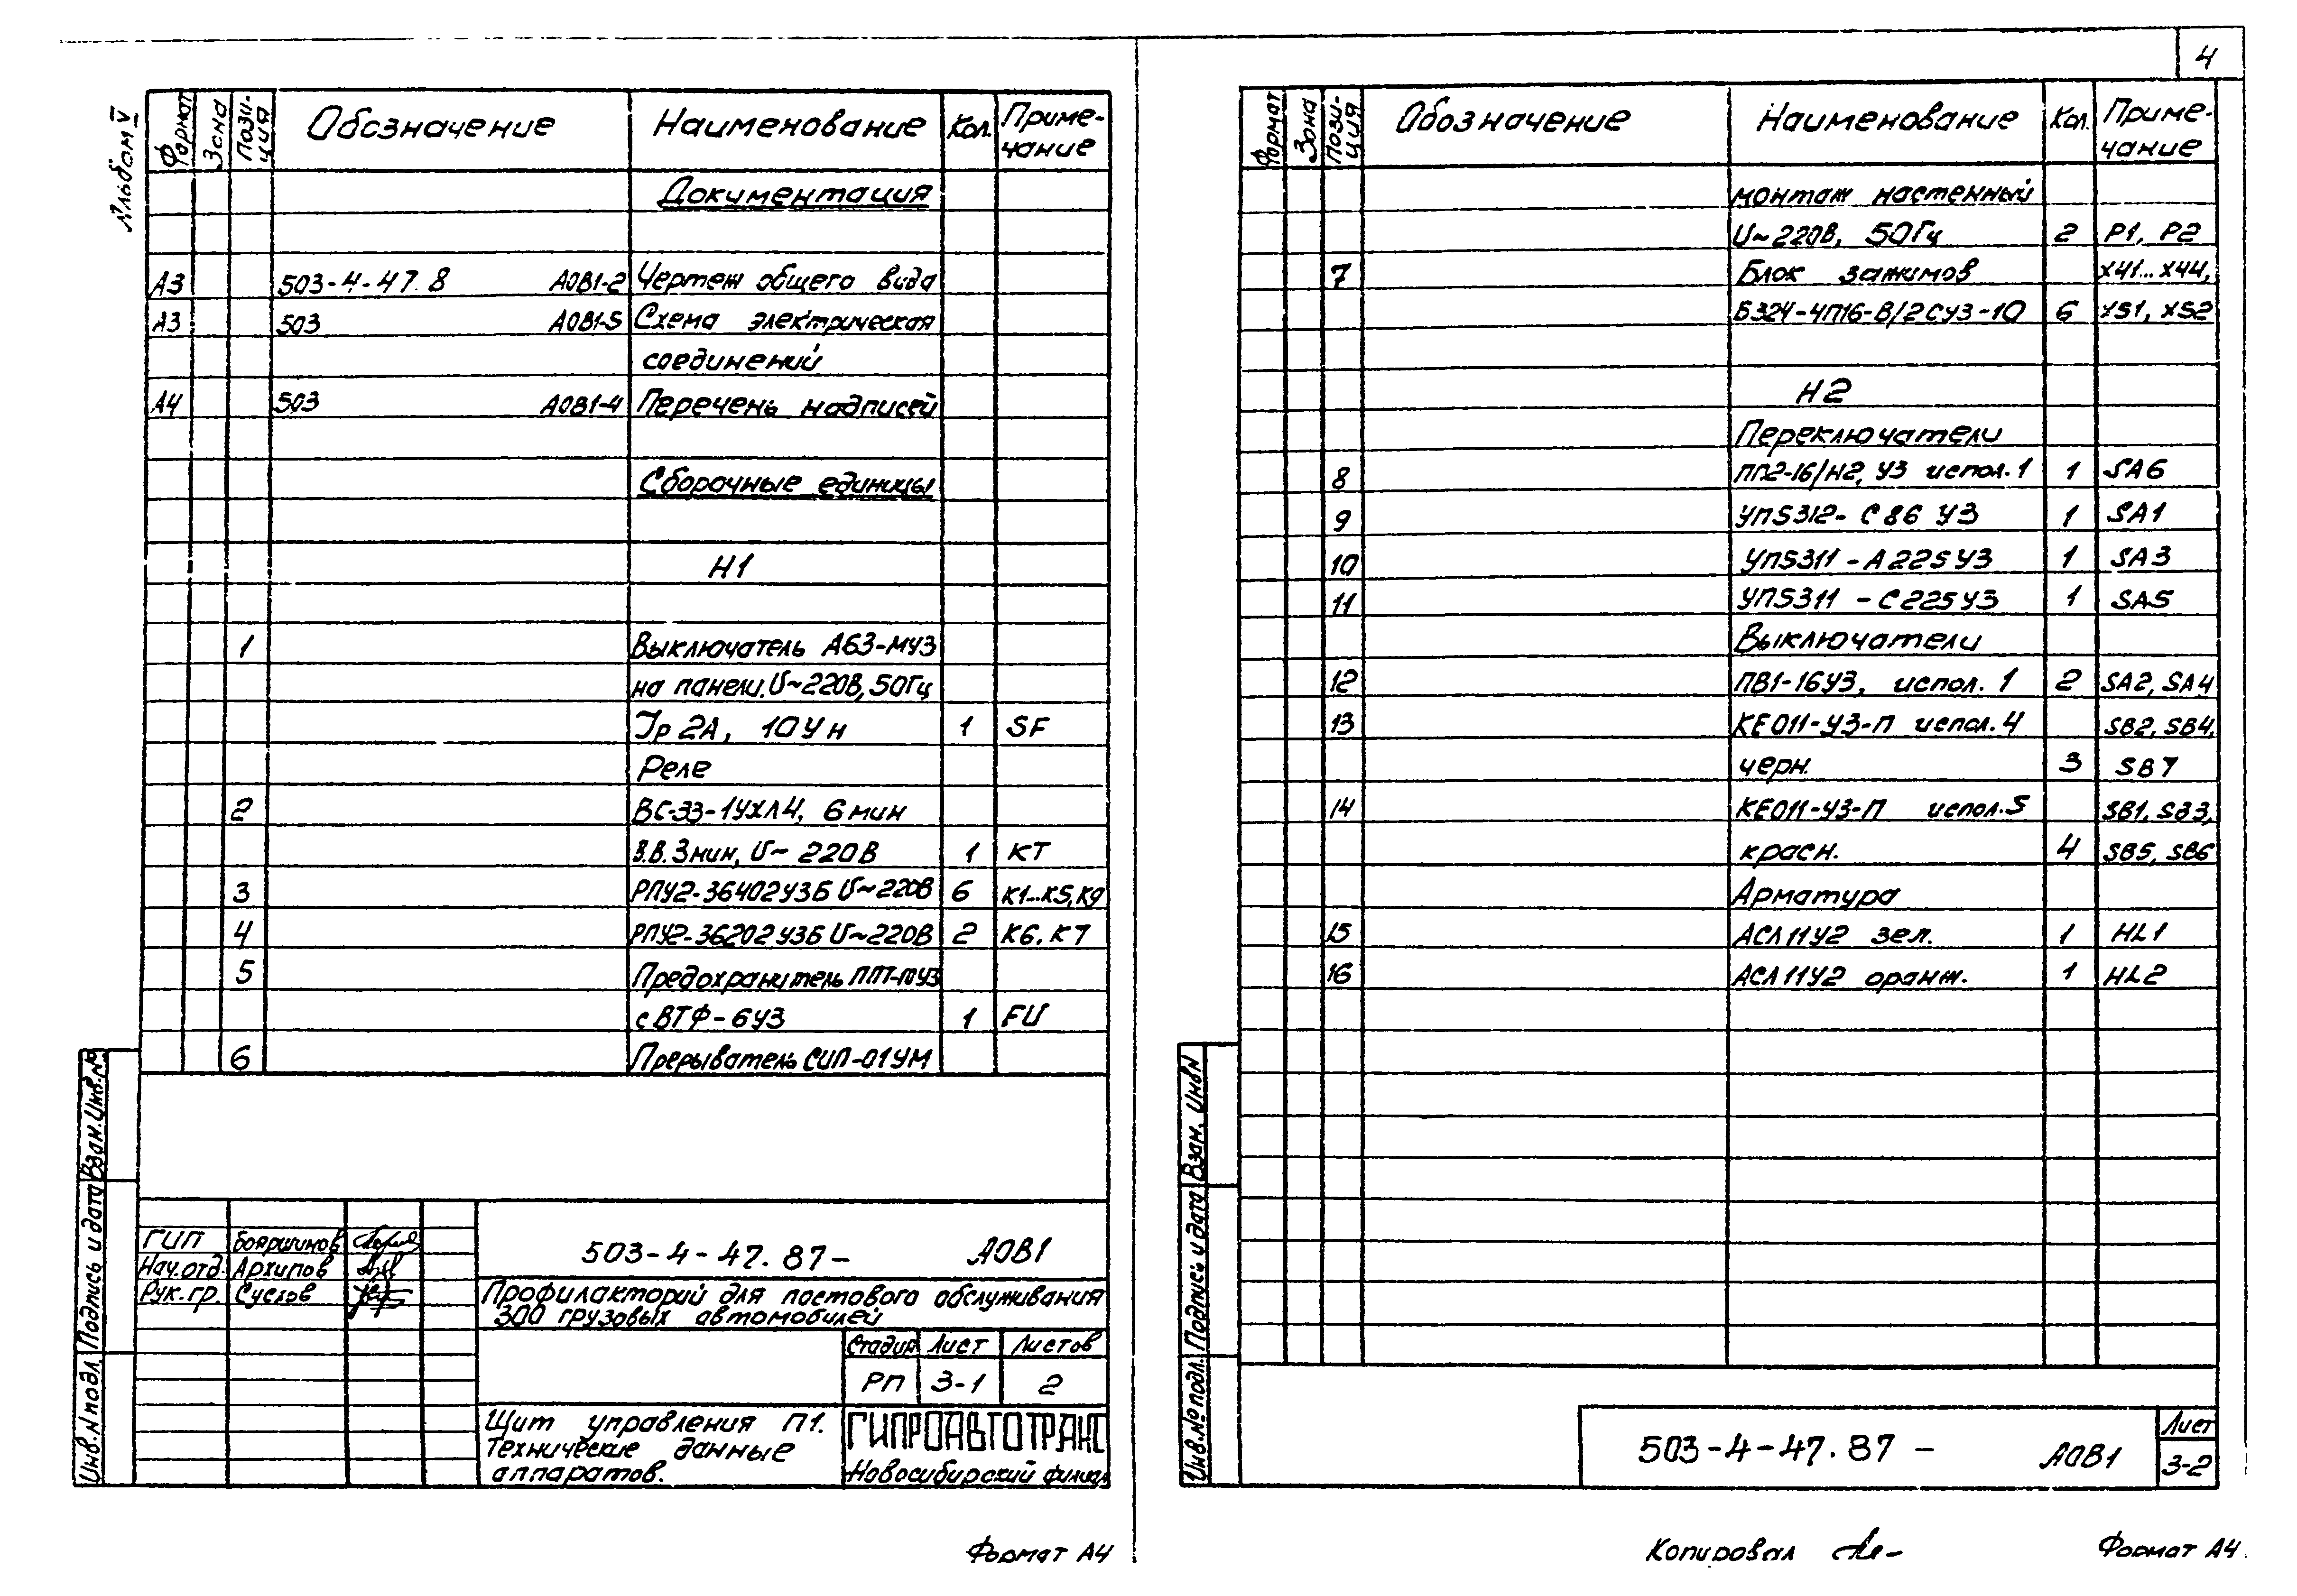 Альбом V
Формат Зона Пози-ция Обозначение Наименование Кол. Приме-чание
Документация
А3 503-4-47.8 АОВ1-2 Чертеж общего вида
А3 503 АОВ1-5 Схема электрическая
соединений
А4 503 АОВ1-4 Перечень надписей
Сборочные единицы
Н1
1 Выключатель А63-МУ3
на панели. U~220В, 50Гц
Jр 2А, 10Ун 1 SF
Реле
2 ВС-33-1УХЛ4, 6 мин
В.В. 3мин, U~ 220В 1 КТ
3 РПУ2-36402У3Б U~220В 6 К1...К5, К9
4 РПУ2-36202У3Б U~220В 2 К6, К7
5 Предохранитель ППТ-10У3
с ВТФ-6У3 1 FU
6 Прерыватель СИП-01УМ
Взам. Инв.№
Подпись и дата
Инв.№ подл.
ГИП Бояршинов
Нач.отд. Архипов
Рук.гр. Суслов
503-4-47.87- АОВ1
Профилакторий для постового обслуживания
300 грузовых автомобилей
Стадия Лист Листов
РП 3-1 2
Щит управления П1.
Технические данные
аппаратов.
ГИПРОАВТОТРАНС
Новосибирский филиал
Формат А4
4
Формат Зона Пози-ция Обозначение Наименование Кол. Приме-чание
монтаж настенный
U~220В, 50Гц 2 Р1, Р2
7 Блок зажимов Х41...Х44,
Б324-4П16-В/2СУ3-10 6 XS1, XS2
Н2
Переключатели
8 ПП2-16/Н2, У3 испол.1 1 SA6
9 УП5312-С86 У3 1 SA1
10 УП5311-А225У3 1 SA3
11 УП5311-С225У3 1 SA5
Выключатели
12 ПВ1-16У3, испол. 1 2 SA2, SA4
13 КЕ011-У3-П испол.4 SB2, SB4,
черн. 3 SB7
14 КЕ011-У3-П испол.5 SB1, SB3,
красн. 4 SB5, SB6
Арматура
15 АСЛ11У2 зел. 1 HL1
16 АСЛ11У2 оранж. 1 HL2
Взам. Инв№
Подпись и дата
Инв.№ подл.
503-4-47.87 - АОВ1
Лист
3-2
Копировал
Формат А4